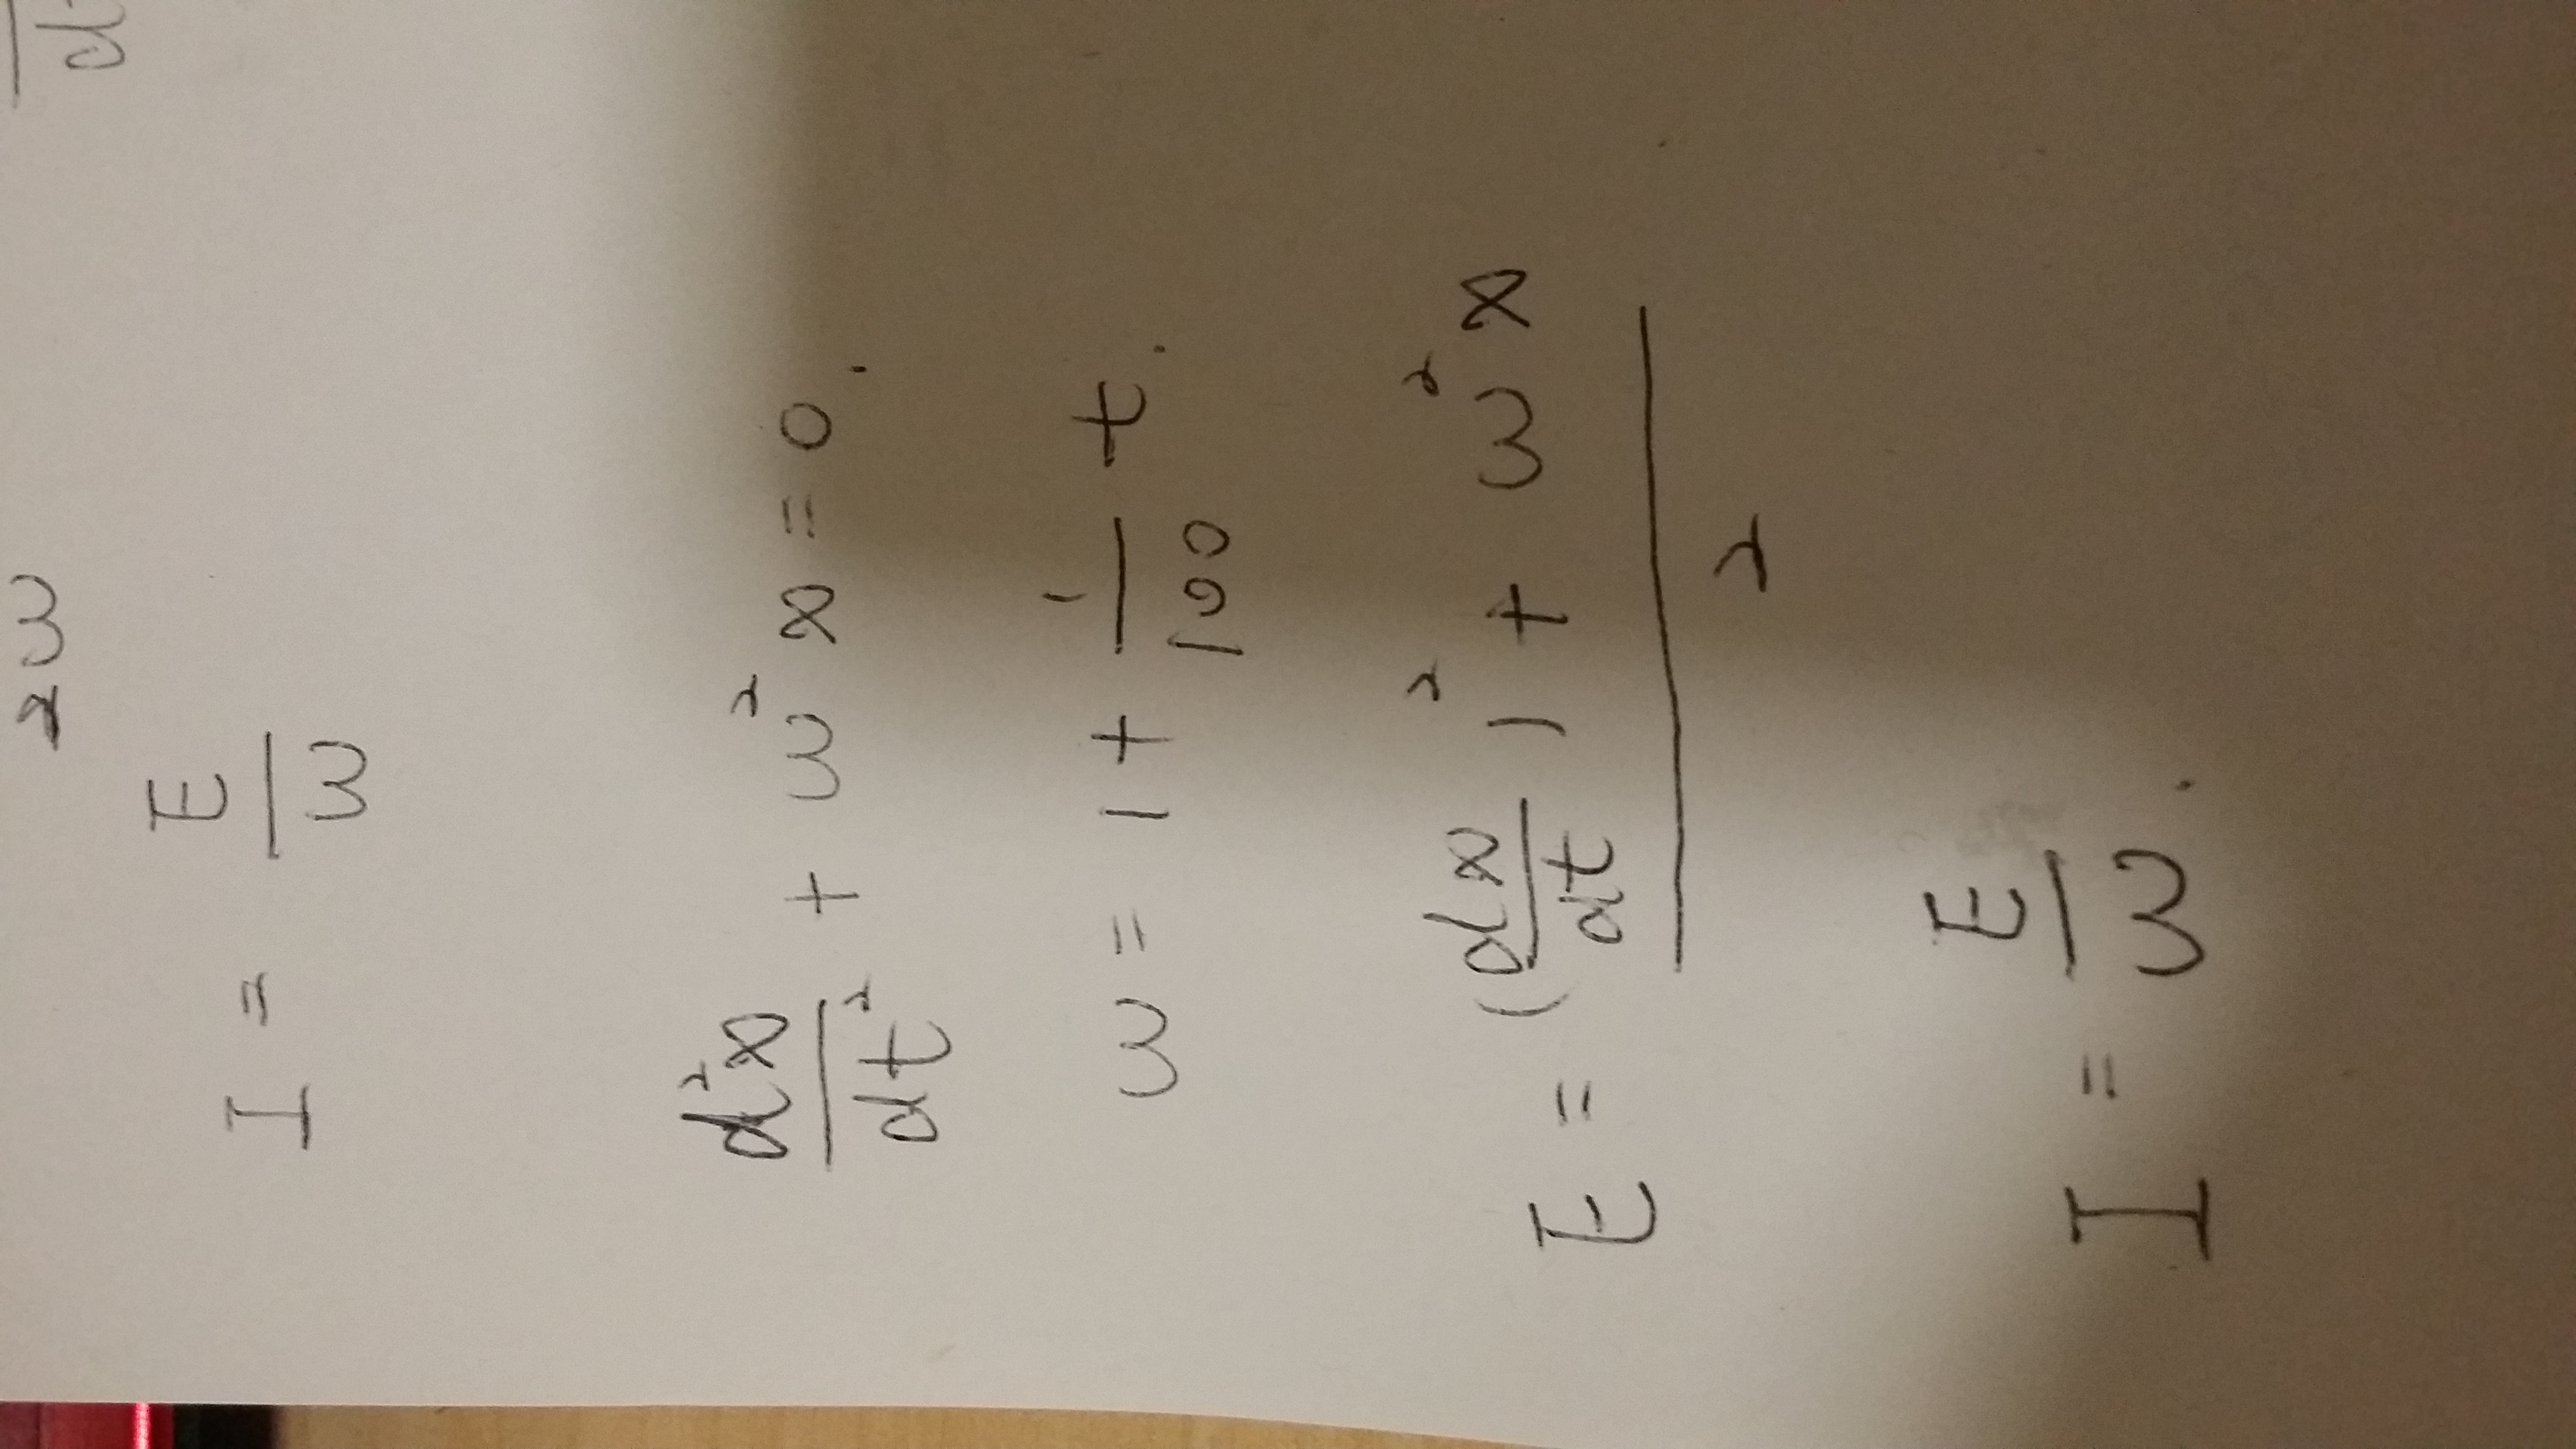 2 ω
I = E/ω
d²x/dt² + ω² x = 0.
ω = 1 + 1/100 t.
E = (dx/dt)² + ω² x / 2
I = E/ω.